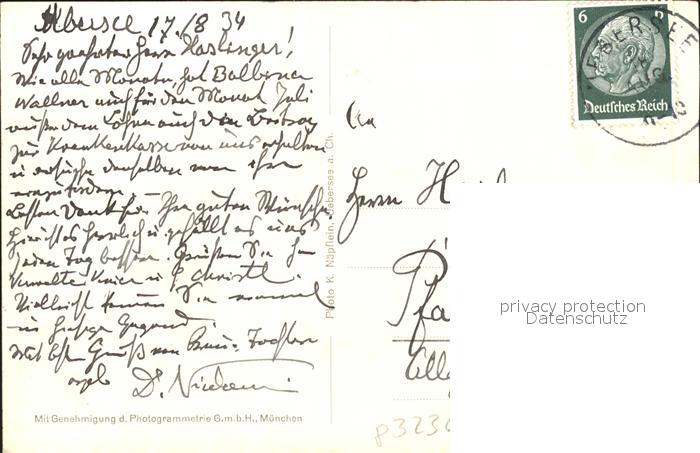 Übersee 17/8 34
Sehr geehrter Herr Haslinger!
Wie alle Monate, hat Balbina
Wallner auch für den Monat Juli
außer dem Lohne auch den Beitrag
zur Krankenkasse von uns erhalten
u. ersuche denselben von ihr
einzufordern. —
Besten Dank für Ihre guten Wünsche
hier ist es herrlich u. gefällt es uns
jeden Tag besser. Grüßen Sie
Verwalter u. Christl.
Vielleicht kommen Sie einmal
in hiesige Gegend
Mit best. Gruß von Frau u. Tochter
Dr.
Mit Genehmigung d. Photogrammetrie G.m.b.H., München
Photo K. Näpflein, Uebersee a. Ch.
An
Herrn H
Pfa
6
Deutsches Reich
UEBERSEE
privacy protection
Datenschutz